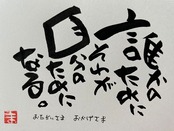 誰かの
ために
それが
自分の
ために
なる。
おたがいさま おかげさま